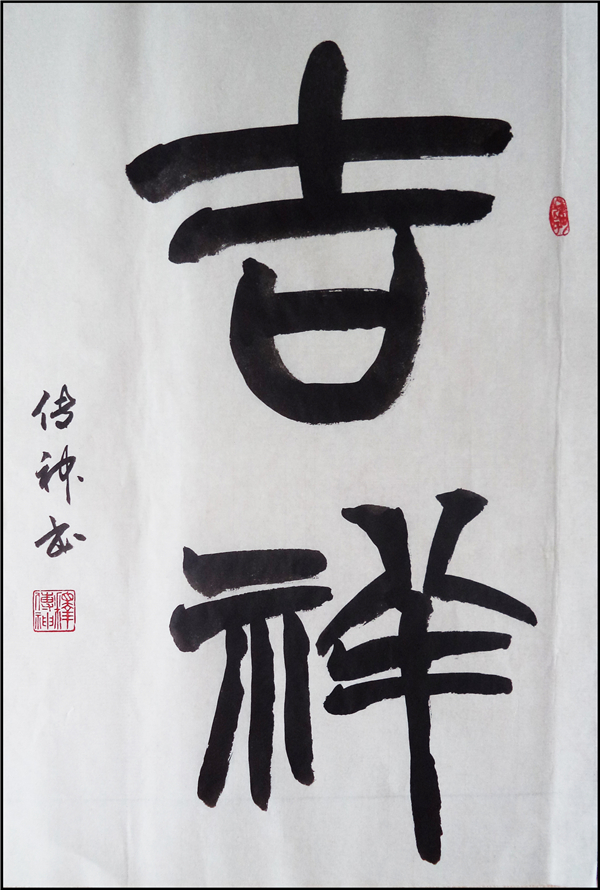 吉祥
传神书